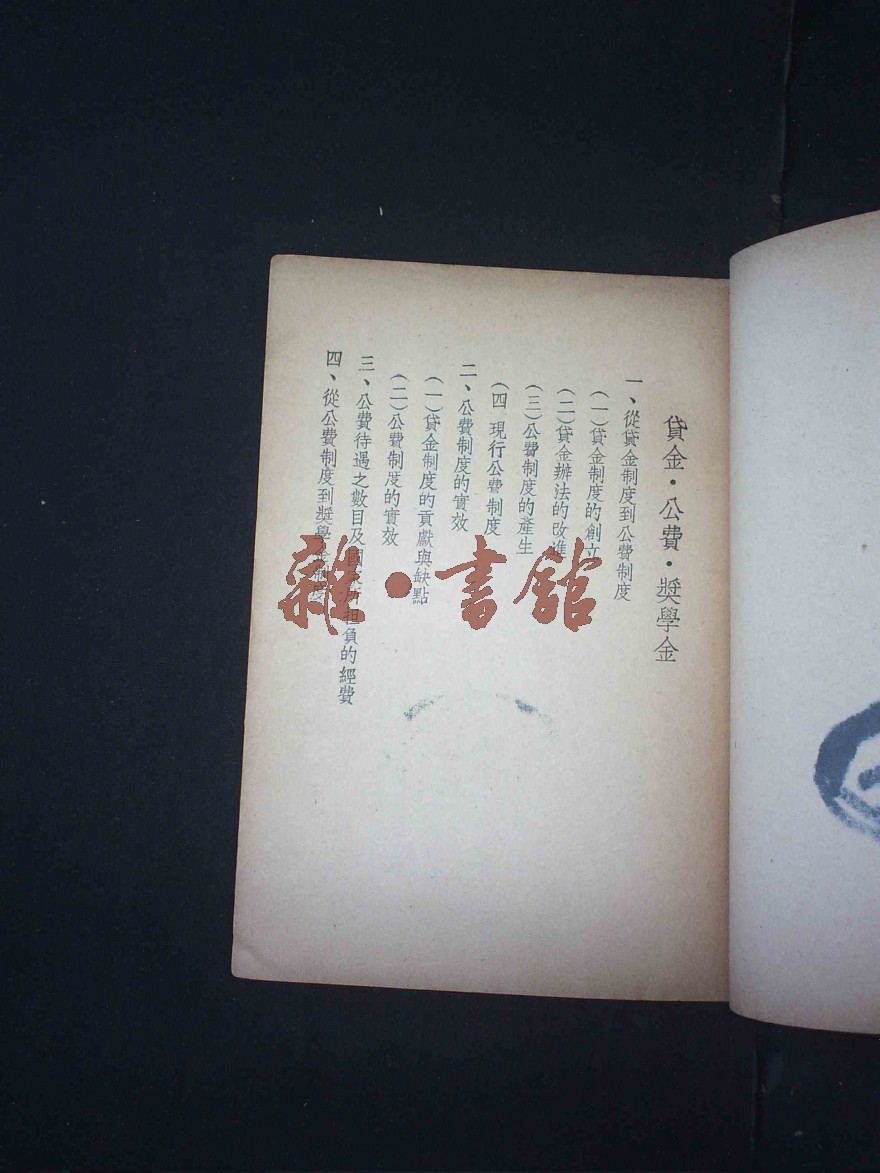 貸金・公費・獎學金
一、從貸金制度到公費制度
(一)貸金制度的創立
(二)貸金辦法的改進
(三)公費制度的產生
(四 現行公費制度
二、公費制度的實效
(一)貸金制度的貢獻與缺點
(二)公費制度的實效
三、公費待遇之數目及國家所担負的經費
四、從公費制度到獎學金制度
雜・書館